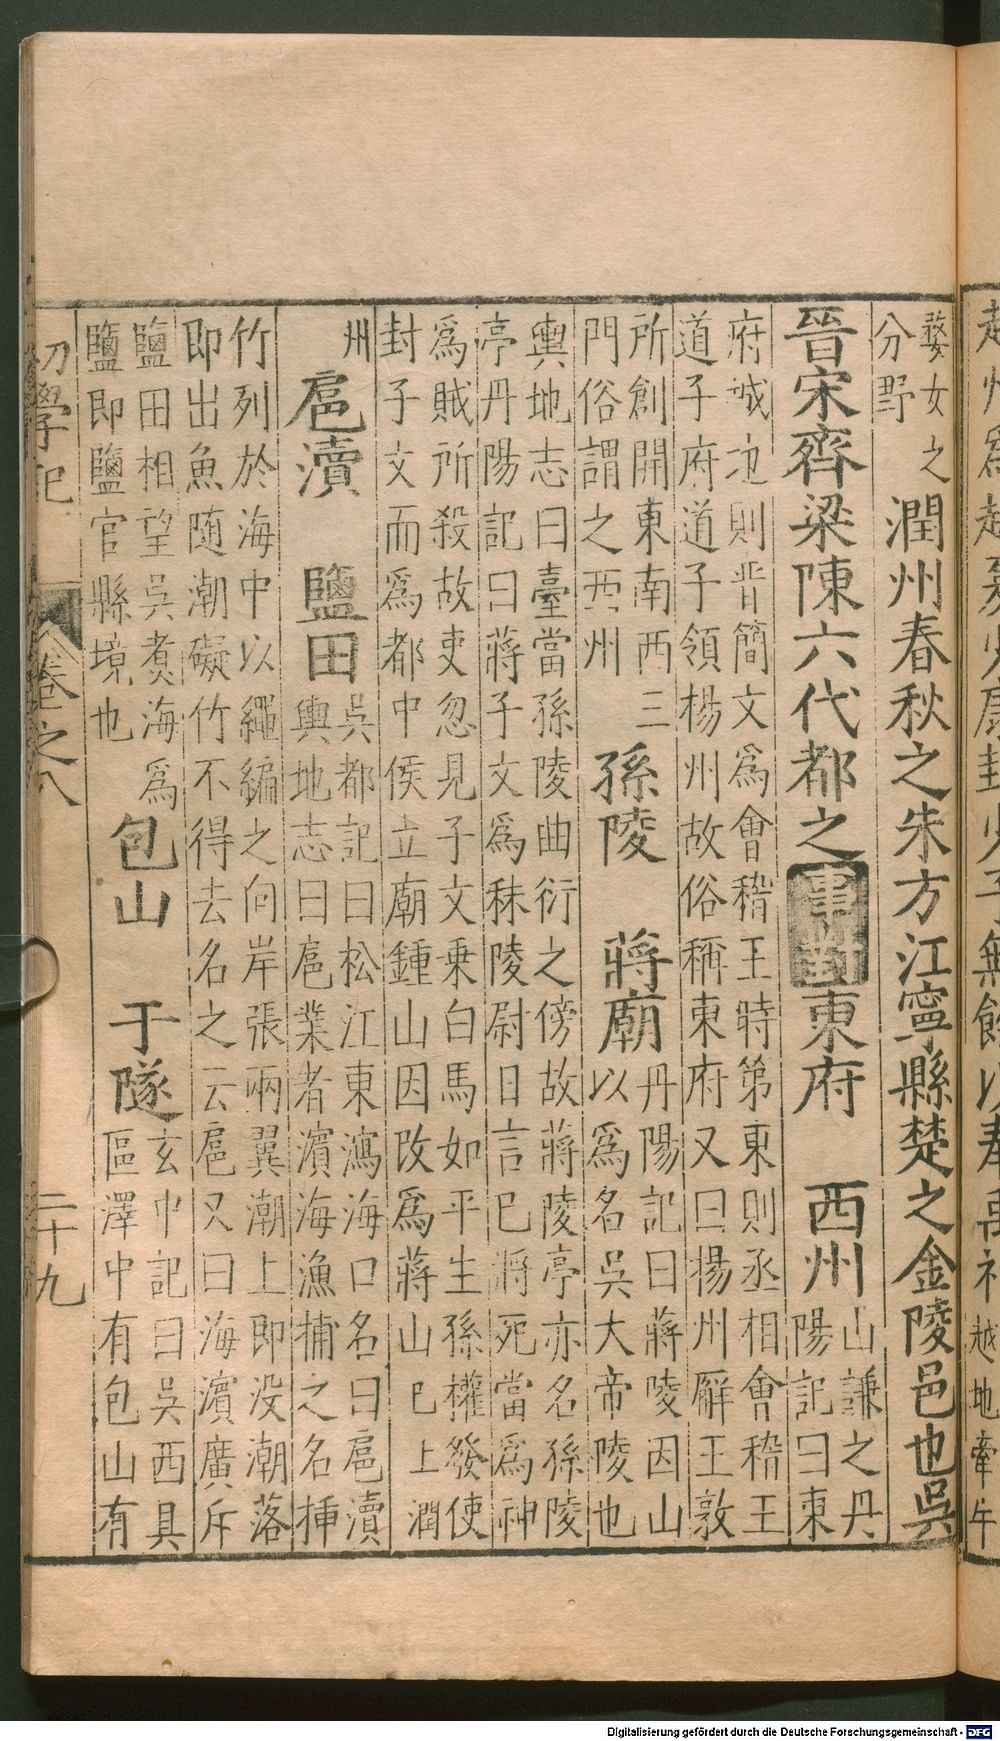 越州為越夏少康封少子無餘以奉禹祀越地牽牛
婺女之
分野
潤州春秋之朱方江寧縣楚之金陵邑也吳
晉宋齊梁陳六代都之事對東府 西州
山謙之丹
陽記曰東
府城池則晋簡文為會稽王時第東則丞相會稽王
道子府道子領楊州故俗稱東府又曰揚州廨王敦
所創開東南西三
門俗謂之西州
孫陵 蔣廟
丹陽記曰蔣陵因山
以為名吳大帝陵也
輿地志曰臺當孫陵曲衍之傍故蔣陵亭亦名孫陵
亭丹陽記曰蔣子文為秣陵尉日言已將死當為神
為賊所殺故吏忽見子文乗白馬如平生孫權發使
封子文而為都中侯立廟鍾山因改為蔣山已上潤
州
扈瀆 鹽田
吳都記曰松江東瀉海口名曰扈瀆
輿地志曰扈業者濱海漁捕之名揷
竹列於海中以繩編之向岸張兩翼潮上即没潮落
即出魚随潮礙竹不得去名之云扈又曰海濱廣斥
鹽田相望吳煑海為
鹽即鹽官縣境也
包山 于隧
玄中記曰吳西具
區澤中有包山有
初學記 卷之八 二十九
Digitalisierung gefördert durch die Deutsche Forschungsgemeinschaft - DFG